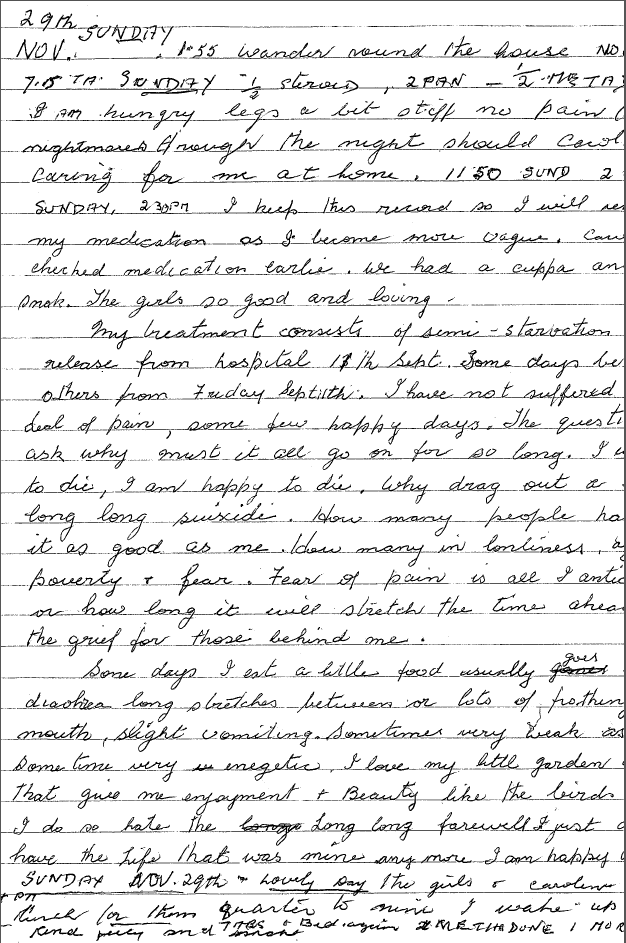 29th SUNDAY
NOV. 1.55 wander round the house NO
7.15 TA. SUNDAY - ½ steroid, 2 PAN - ½ META
I AM hungry legs a bit stiff no pain
nightmares through the night should Carol
caring for me at home. 11 50 SUND 2
SUNDAY, 2 30PM I keep this record so I will re
my medication as I become more vague. Caro
checked medication earlie. We had a cuppa an
smok. The girls so good and loving -
My treatment consists of semi-starvation
release from hospital 11th Sept. Some days be
others from Friday Sept 11th. I have not suffered
deal of pain, some few happy days. The questi
ask why must it all go on for so long. I w
to die, I am happy to die. Why drag out a
long long suixide. How many people ha
it as good as me. How many in lonliness,
poverty + fear. Fear of pain is all I antic
or how long it will stretch the time ahea
the grief for those behind me.
goes
Some days I eat a little food usually
diaohrea long stretches between or lots of frothing
mouth, slight vomiting. Sometimes very weak as
sometime very enegetic. I love my littl garden
That give me enjoyment + Beauty like the birds
I do so hate the Long long farewell I just
have the Life that was mine any more I am happy
SUNDAY NOV. 29th - Lovely Day the girls & caroline
+ PM
lunch for them quarter to nine I wake up
juicy and smoke Bed again 2 METHADONE 1 MOR